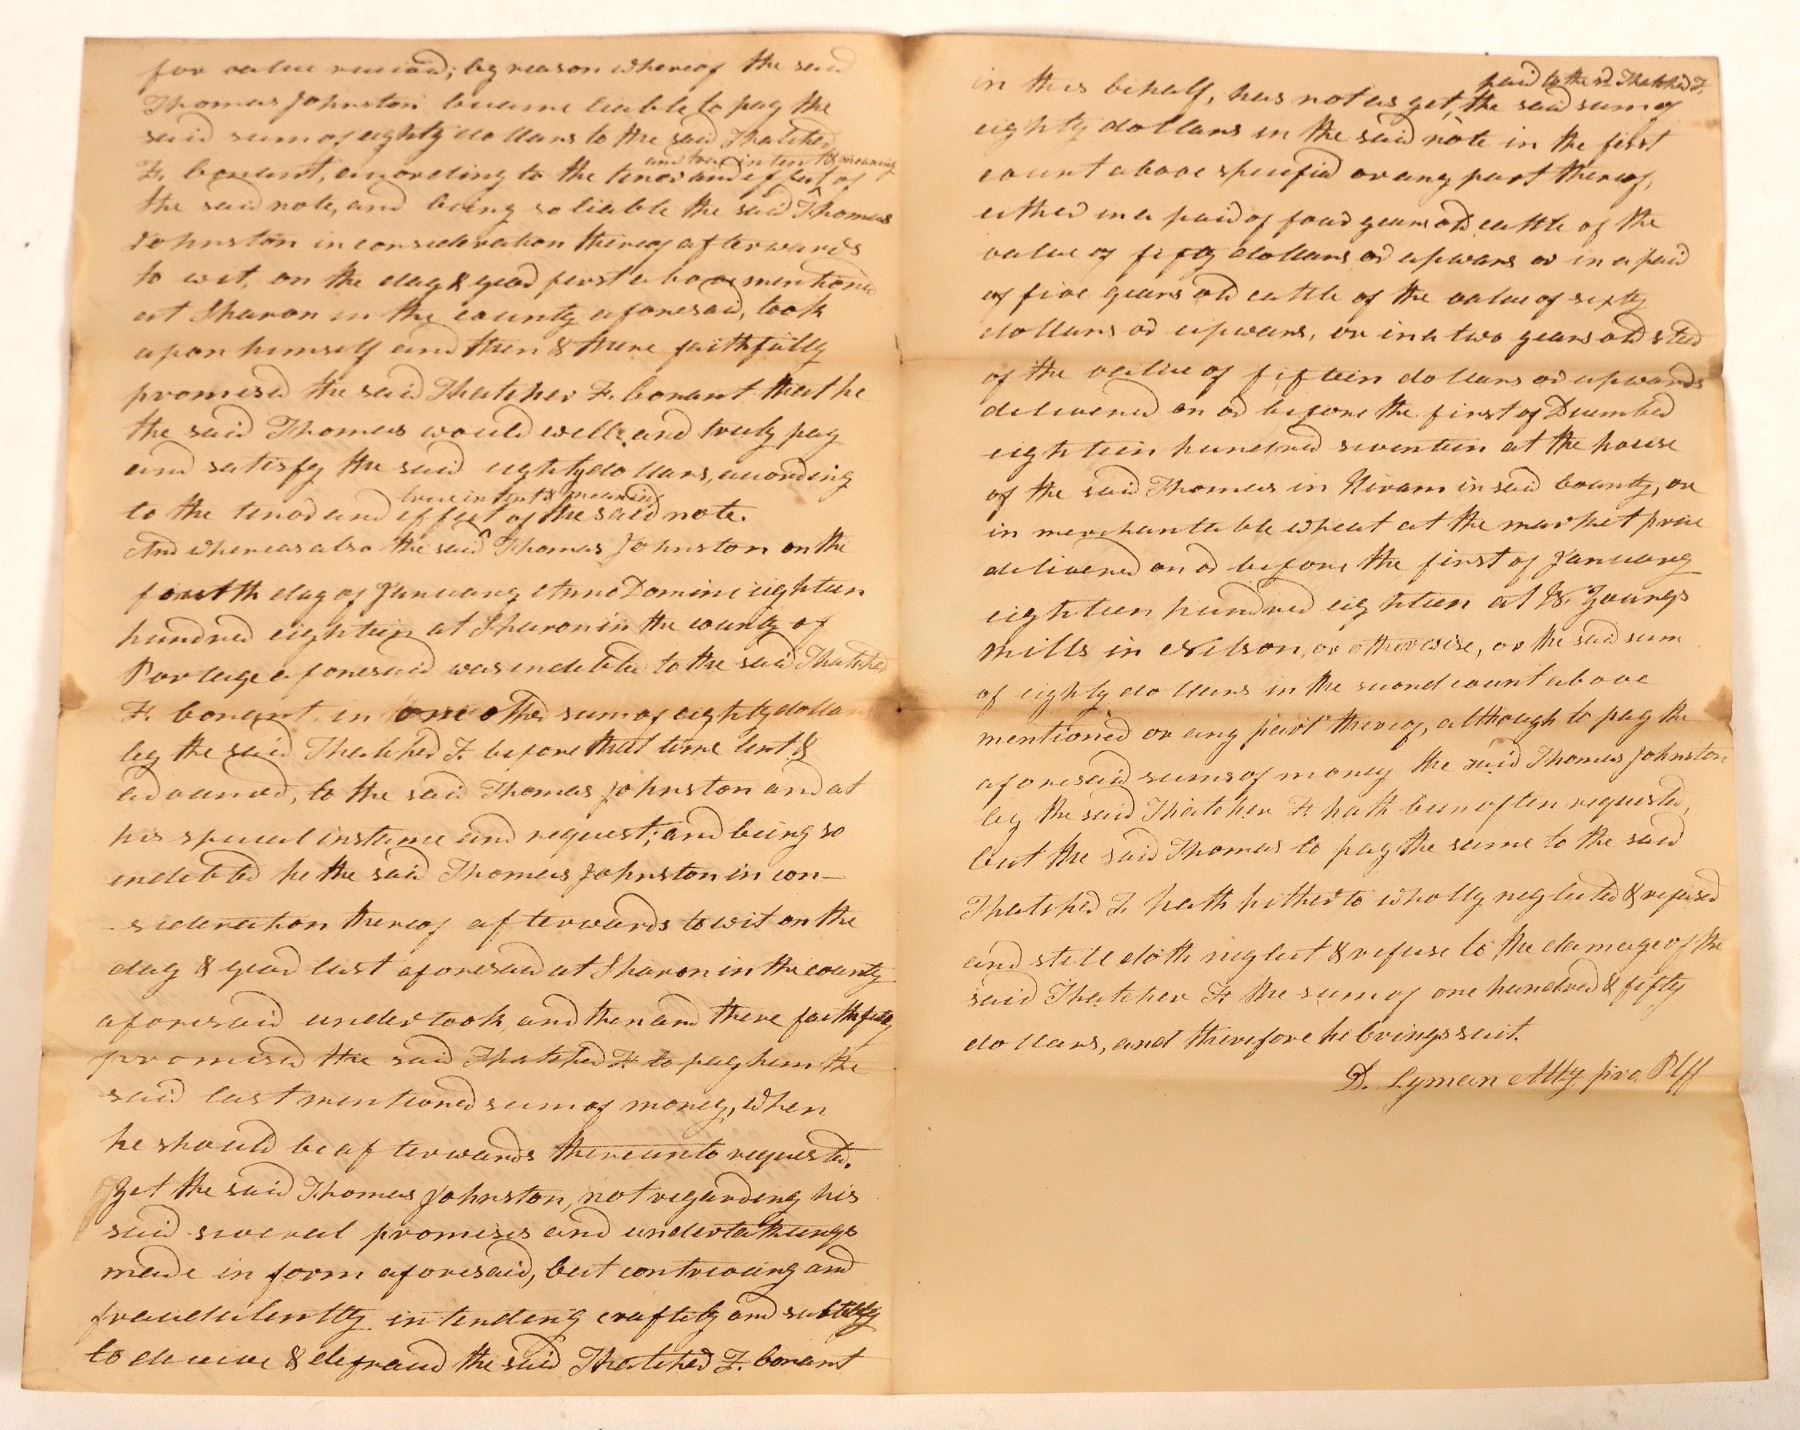 for value received; by reason whereof the said
Thomas Johnston became liable to pay the
said sum of eighty dollars to the said Thatcher
and true intent & meaning
F. Conant, according to the tenor and effect of
the said note, and being so liable the said Thomas
Johnston in consideration thereof afterwards
to wit, on the day & year first above mentioned
at Sharon in the county aforesaid, took
upon himself and then & there faithfully
promised the said Thatcher F. Conant that he
the said Thomas would well and truly pay
and satisfy the said eighty dollars, according
true intent & meaning
to the tenor and effect of the said note.
And whereas also the said Thomas Johnston on the
fourth day of January Anno Domini eighteen
hundred eighteen at Sharon in the county of
Portage aforesaid was indebted to the said Thatcher
F. Conant in one other sum of eighty dollars
by the said Thatcher F. before that time lent &
advanced, to the said Thomas Johnston and at
his special instance and request; and being so
indebted he the said Thomas Johnston in con-
sideration thereof afterwards to wit on the
day & year last aforesaid at Sharon in the county
aforesaid undertook, and then and there faithfully
promised the said Thatcher F. to pay him the
said last mentioned sum of money, when
he should be afterwards thereunto requested.
Yet the said Thomas Johnston, not regarding his
said several promises and undertakings
made in form aforesaid, but contriving and
fraudulently intending craftily and subtilly
to deceive & defraud the said Thatcher F. Conant
paid to the sd Thatcher F.
in this behalf, has not as yet, the said sum of
eighty dollars in the said note in the first
count above specified or any part thereof,
either in a pair of four years old cattle of the
value of fifty dollars or upwars or in a pair
of five years old cattle of the value of sixty
dollars or upwars, or in a two years old sted
of the value of fifteen dollars or upwards
delivered on or before the first of December
eighteen hundred seventeen at the house
of the said Thomas in Hiram in said County, or
in merchantable wheat at the market price
delivered on or before the first of January
eighteen hundred eighteen at W. Youngs
Mills in Nelson, or otherwise, or the said sum
of eighty dollars in the second count above
mentioned or any part thereof, although to pay the
aforesaid sums of money the said Thomas Johnston
by the said Thatcher F. hath been often requested,
but the said Thomas to pay the same to the said
Thatcher F. hath hitherto wholly neglected & refused
and still doth neglect & refuse to the damage of the
said Thatcher F. the sum of one hundred & fifty
dollars, and therefore he brings suit.
D. Lyman Atty pro. Plff